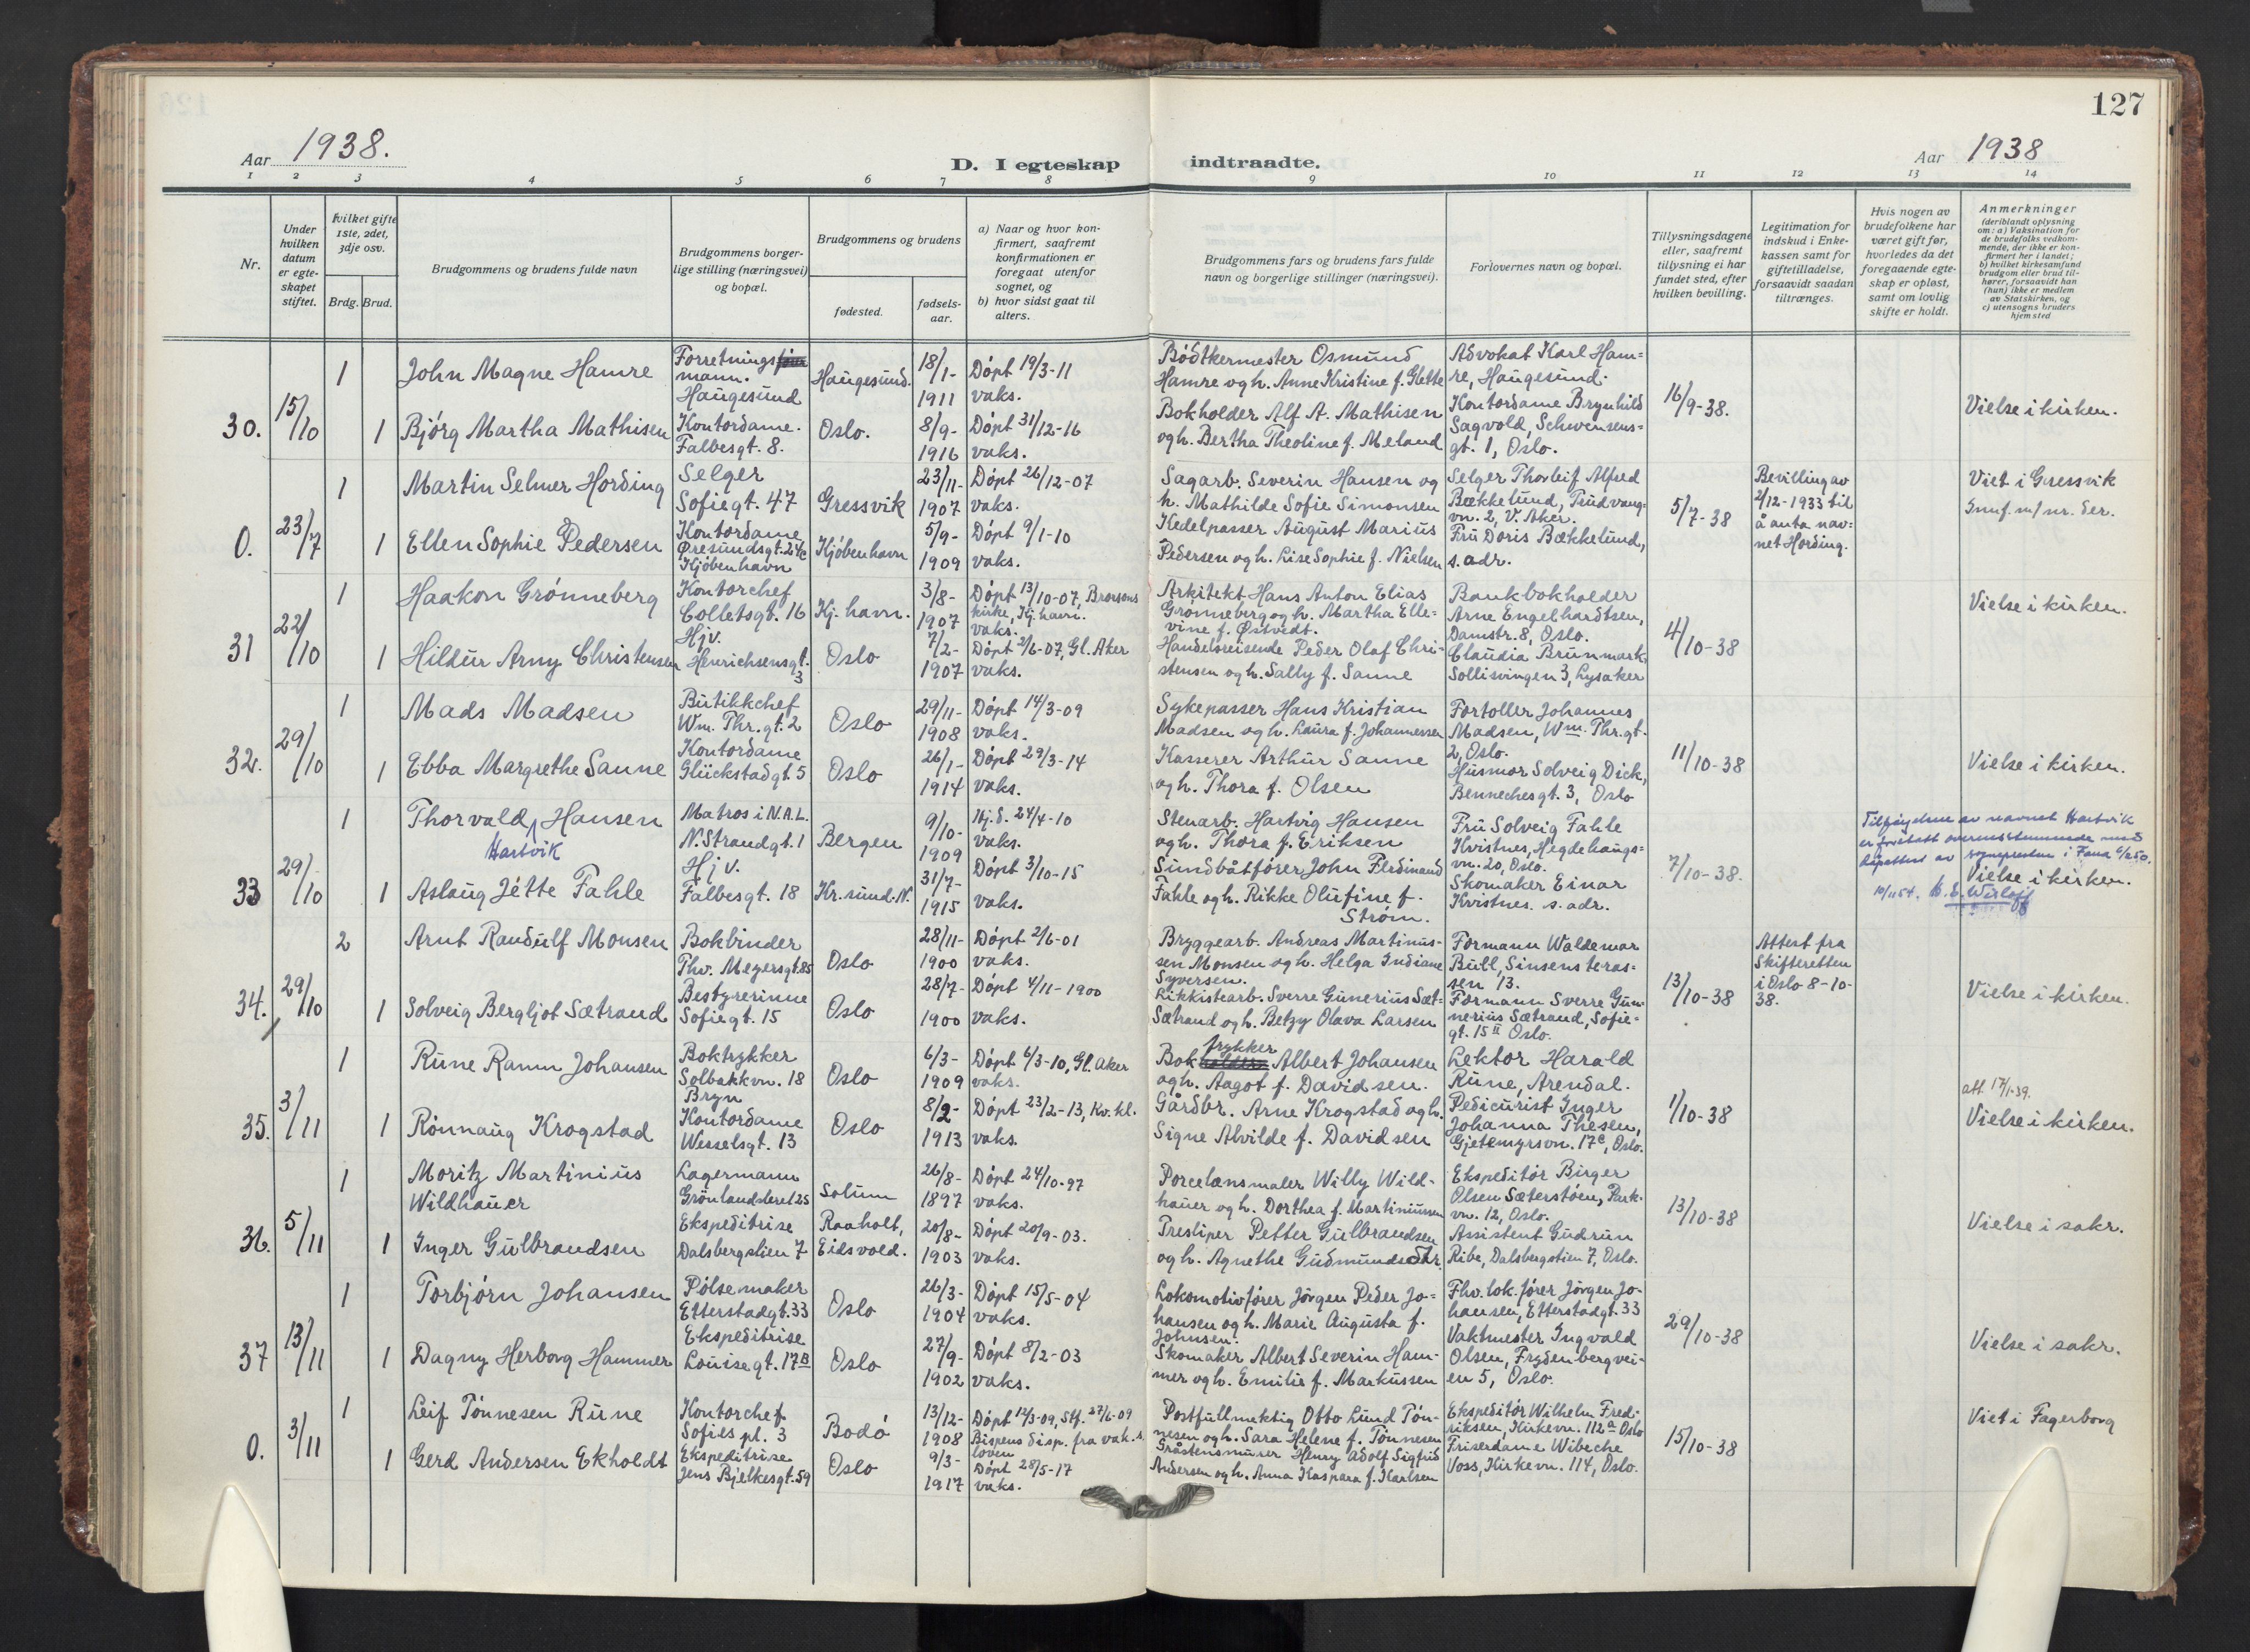 127
Aar 1938.
D. I egteskap indtraadte.
Aar 1938
1 2 3 4 5 6 7 8 9 10 11 12 13 14
Nr.
Under hvilken datum er egteskapet stiftet.
Hvilket gifte 1ste, 2det, 3dje osv.
Brdg. Brud.
Brudgommens og brudens fulde navn
Brudgommens borgerlige stilling (næringsvei) og bopæl.
Brudgommens og brudens
fødested.
fødselsaar.
a) Naar og hvor konfirmert, saafremt konfirmationen er foregaat utenfor sognet, og
b) hvor sidst gaat til alters.
Brudgommens fars og brudens fars fulde navn og borgerlige stillinger (næringsvei).
Forlovernes navn og bopæl.
Tillysningsdagene eller, saafremt tillysning ei har fundet sted, efter hvilken bevilling.
Legitimation for indskud i Enkekassen samt for giftetilladelse, forsaavidt saadan tiltrænges.
Hvis nogen av brudefolkene har været gift før, hvorledes da det foregaaende egteskap er opløst, samt om lovlig skifte er holdt.
Anmerkninger (deriblandt oplysning om: a) Vaksination for de brudefolks vedkommende, der ikke er konfirmert her i landet; b) hvilket kirkesamfund brudgom eller brud tilhører, forsaavidt han (hun) ikke er medlem av Statskirken, og c) utensogns bruders hjemsted
30. 15/10
1 John Magne Hamre
Forretningsmann. Haugesund
Haugesund.
18/1-1911
Døpt 19/3-11 vaks.
Bødtkermester Osmund Hamre og h. Anne Kristine f. Glette
Advokat Karl Hamre, Haugesund.
1 Bjórg Martha Mathisen
Kontordame. Falbesgt. 8.
Oslo.
8/9-1916
Døpt 31/12-16 vaks.
Bokholder Alf A. Mathisen og h. Bertha Theoline f. Meland
Kontordame Brynhild Sagvold, Schwensensgt. 1, Oslo.
16/9-38.
Vielse i kirken.
0. 23/7
1 Martin Selmer Hording
Selger Sofiegt. 47
Gressvik
23/11-1907
Døpt 26/12-07 vaks.
Sagarb. Severin Hansen og h. Mathilde Sofie Simonsen
Selger Thorleif Alfred Bækkelund, Trudvangvn. 2, V. Aker.
1 Ellen Sophie Pedersen
Kontordame, Øresundsgt. 24c Kjóbenhavn
Kjóbenhavn
5/9-1909
Døpt 9/1-10 vaks.
Kedelpasser August Marius Pedersen og h. Lise Sophie f. Nielsen
Fru Doris Bækkelund, s. adr.
5/7-38
Bevilling av 2/12-1933 til å anta navnet Hording.
Viet i Gressvik
Innf. m/ nr. der.
31 22/10
1 Haakon Grønneberg
Kontorchef Colletsgt. 16
Kj.havn.
3/8-1907
Døpt 13/10-07, Brorsons kirke, Kj.havn. vaks.
Arkitekt Hans Anton Elias Grønneberg og h. Martha Ellevine f. Østvedt.
Bankbokholder Arne Engelhardtsen, Damstr. 8, Oslo.
1 Hildur Arny Christensen
Hjv. Henrichsensgt. 3
Oslo
7/2-1907
Døpt 2/6-07, Gl. Aker vaks.
Handelsreisende Peder Olaf Christensen og h. Sally f. Sanne
Claudia Brunmark, Sollisvingen 3, Lysaker
4/10-38
Vielse i kirken.
32. 29/10
1 Mads Madsen
Butikkchef Wm. Thr.gt. 2
Oslo
29/11-1908
Døpt 14/3-09 vaks.
Sykepasser Hans Kristian Madsen og h. Laura f. Johannessen
Fortoller Johannes Madsen, Wm. Thr.gt. 2, Oslo.
1 Ebba Margrethe Sanne
Kontordame Glückstadgt. 5
Oslo
26/1-1914
Døpt 29/3-14 vaks.
Kasserer Arthur Sanne og h. Thora f. Olsen
Husmor Solveig Dick, Bennechesgt. 3, Oslo
11/10-38
Vielse i kirken.
33 29/10
1 Thorvald Hartvik Hansen
Matros i N.A.L. N. Strandgt. 1
Bergen
9/10-1909
Hj.d. 24/4-10 vaks.
Stenarb. Hartvig Hansen og h. Thora f. Eriksen
Fru Solveig Fahle Kvistnes, Hegdehaugsvn. 20, Oslo.
1 Aslaug Jétte Fahle
Hjv. Falbesgt. 18
Kr.sund. N.
31/7-1915
Døpt 3/10-15 vaks.
Sundbåtfører John Ferdinand Fahle og h. Rikke Olufine f. Strøm.
Skomaker Einar Kvistnes. s. adr.
7/10-38.
Tilføyelsen av navnet Hartvik er foretatt overensstemmende med av sognepresten i Fana
Vielse i kirken.
34. 29/10
2 Arnt Randulf Monsen
Bokbinder Thv. Meyersgt. 85
Oslo
28/11-1900
Døpt 2/6-01 vaks.
Bryggearb. Andreas Martinussen Monsen og h. Helga Indiane Syversen.
Formann Waldemar Bull, Sinsensterassen 13.
1 Solveig Bergljot Sætrand
Bestyrerinne Sofiegt. 15
Oslo
28/7-1900
Døpt 4/11-1900 vaks.
Likkistearb. Sverre Gunerius Sæt-Sætrand og h. Betzy Olava Larsen
Formann Sverre Gunnerius Sætrand, Sofiegt. 15 II Oslo.
13/10-38
Attest fra Skifteretten i Oslo 8-10-38.
Vielse i kirken.
35. 3/11
1 Rune Ramm Johansen
Boktrykker Solbakkvn. 18 Bryn
Oslo
6/3-1909
Døpt 6/3-10, Gl. Aker vaks.
Boktrykker Albert Johansen og h. Aagot f. Davidsen.
Lektor Harald Rune, Arendal.
1 Rónnaug Krogstad
Kontordame Wesselsgt. 13
Oslo
8/2-1913
Døpt 23/2-13, Kv. kl. vaks.
Gårdbr. Arne Krogstad og h. Signe Alvilde f. Davidsen
Pedicurist Inger Johanna Thesen, Gjetemyrsvn. 17c, Oslo.
1/10-38
att. 17/1-39.
Vielse i kirken.
36. 5/11
1 Moritz Martinius Wildhauer
Lagermann Grønlandsleret 25
Solum
26/8-1897
Døpt 24/10-97 vaks.
Porcelænsmaler Willy Wildhauer og h. Dorthea f. Martiniussen
Ekspeditór Birger Olsen Sæterstóen, Parkvn. 12, Oslo.
1 Inger Gulbrandsen
Ekspeditrise Dalsbergstien 7
Raaholt, Eidsvold.
20/8-1903
Døpt 20/9-03. vaks.
Tresliper Petter Gulbrandsen og h. Agnethe Gudmundsdtr.
Assistent Gudrun Ribe, Dalsbergstien 7, Oslo.
13/10-38
Vielse i sakr.
37 13/11
1 Torbjórn Johansen
Pølsemaker Etterstadgt. 33
Oslo
26/3-1904
Døpt 15/5-04 vaks.
Lokomotivfører Jórgen Peder Johansen og h. Marie Augusta f. Johnsen.
Fhv. lok.fórer Jórgen Johansen, Etterstadgt. 33
1 Dagny Herborg Hammer
Ekspeditrise Louisegt. 17B
Oslo
27/9-1902
Døpt 8/2-03 vaks.
Skomaker Albert Severin Hammer og h. Emilie f. Markussen
Vaktmester Ingvald Olsen, Frydenbergveien 5, Oslo.
29/10-38
Vielse i sakr.
0. 3/11
1 Leif Tónnesen Rune
Kontorchef Sofies pl. 3
Bodó
13/12-1908
Døpt 12/3-09, Stf. 27/6-09 Bispens disp. fra vak.s loven
Postfullmektig Otto Lund Tónnesen og h. Sara Helene f. Tónnesen
Ekspeditór Wilhelm Fredriksen, Kirkevn. 112a Oslo
1 Gerd Andersen Ekholdt
Ekspeditrise Jens Bjelkesgt. 59
Oslo
9/3-1917
Døpt 28/5-17 vaks.
Gråstensmurer Henry Adolf Sigfrid Andersen og h. Anna Kaspara f. Karlsen
Friserdame Wibeche Voss, Kirkevn. 114, Oslo.
15/10-38
Viet i Fagerborg